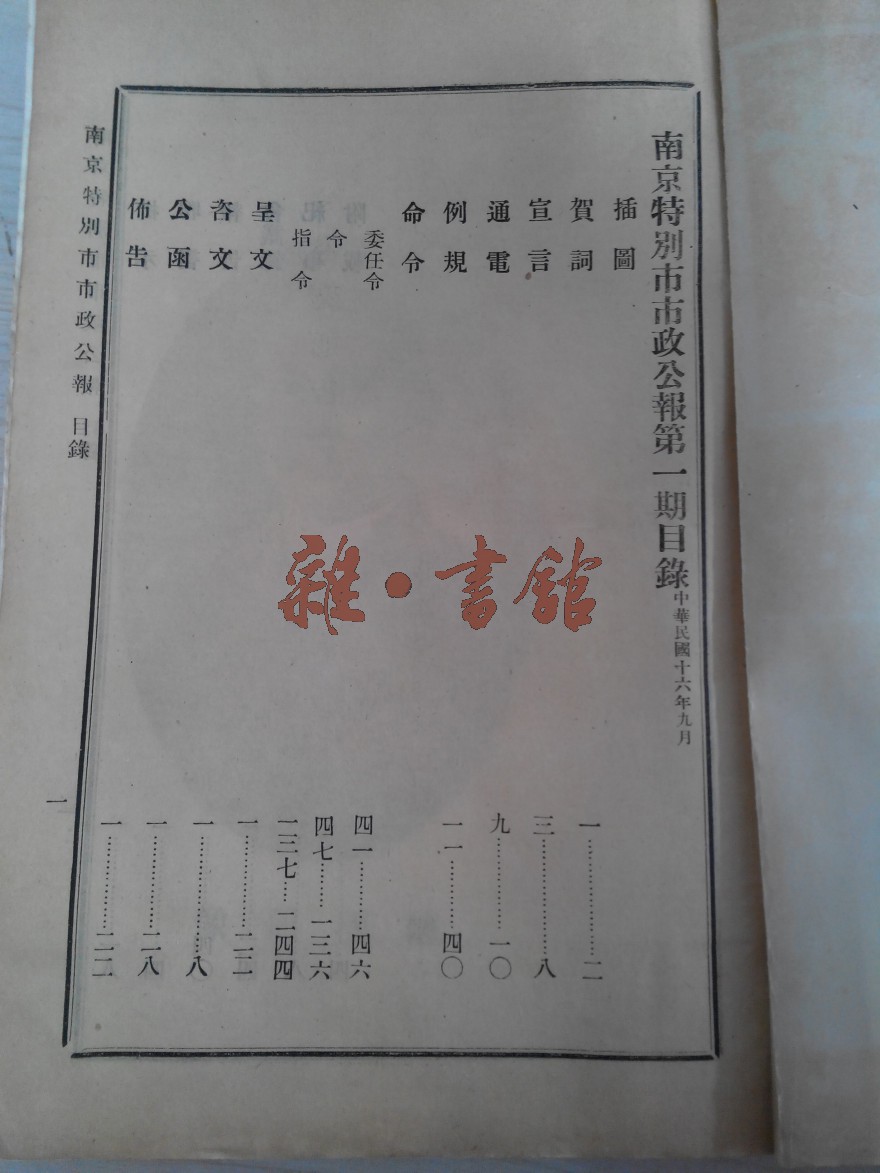 南京特別市市政公報第一期目錄中華民國十六年九月
插圖
賀詞 一……二
宣言 三……八
通電 九……一〇
例規 一一……四〇
命令
委任令 四一……四六
令 四七……一三六
指令 一三七……二四四
呈文 一……二二
咨文 一……八
公函 一……二八
佈告 一……二二
南京特別市市政公報 目錄
一
雜·書館